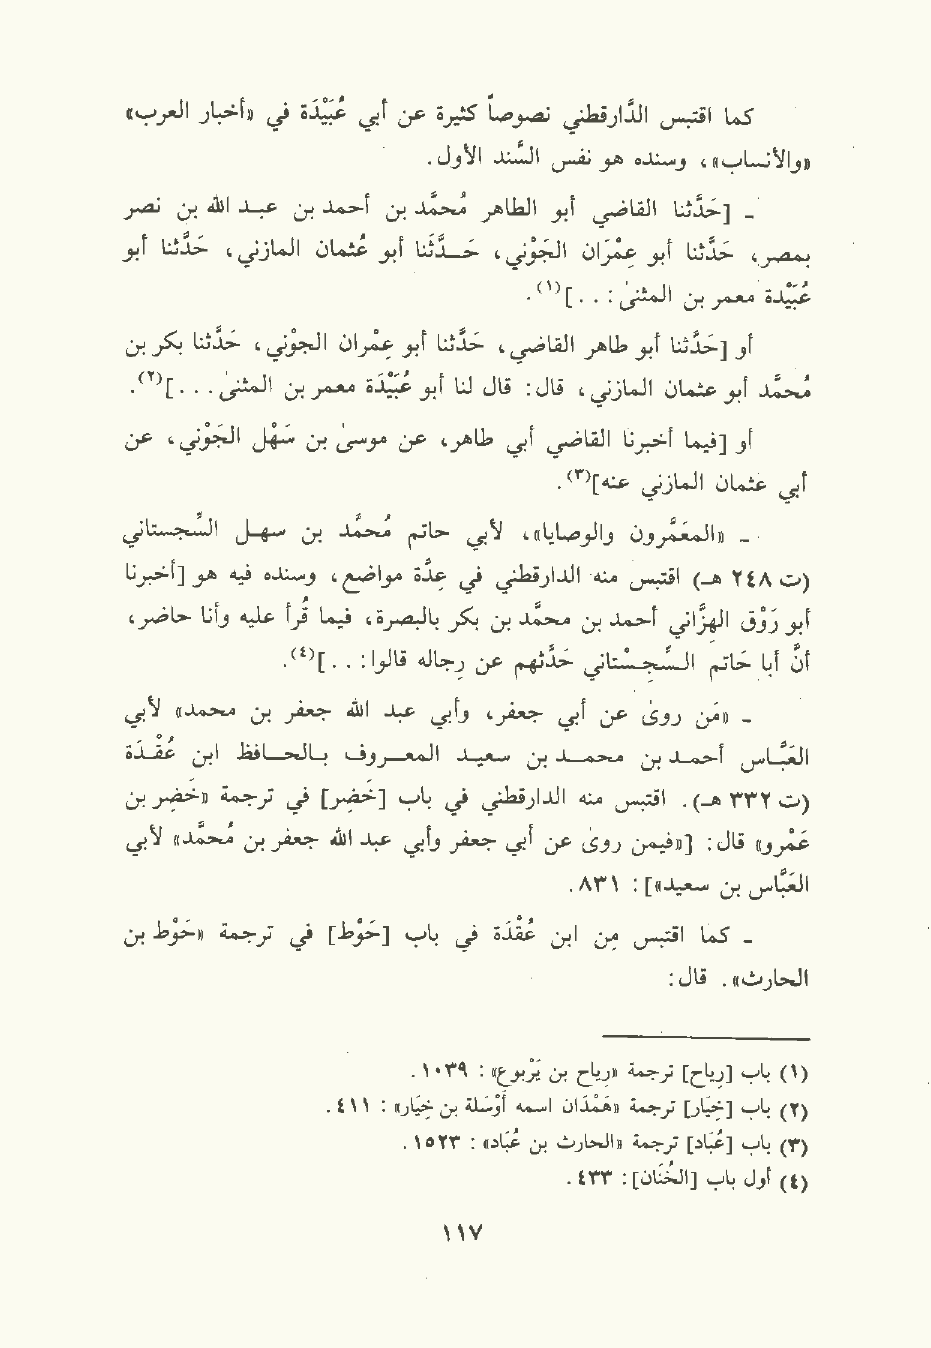 كما اقتبس الدَّارقطني نصوصاً كثيرة عن أبي عُبَيْدَة في «أخبار العرب»
«والأنساب»، وسنده هو نفس السَّند الأول.
- [حَدَّثنا القاضي أبو الطاهر مُحمَّد بن أحمد بن عبد الله بن نصر
بمصر، حَدَّثنا أبو عِمْرَان الجَوْني، حَدَّثنا أبو عُثمان المازني، حَدَّثنا أبو
عُبَيْدة معمر بن المثنىٰ: . .](١).
أو [حَدَّثنا أبو طاهر القاضي، حَدَّثنا أبو عِمْران الجَوْني، حَدَّثنا بكر بن
مُحمَّد أبو عثمان المازني، قال: قال لنا أبو عُبَيْدَة معمر بن المثنىٰ. . .](٢).
أو [فيما أخبرنا القاضي أبي طاهر، عن موسىٰ بن سَهْل الجَوْني، عن
أبي عثمان المازني عنه](٣).
- «المعَمَّرون والوصايا»، لأبي حاتم مُحمَّد بن سهل السِّجستاني
(ت ٢٤٨ هـ) اقتبس منه الدارقطني في عِدَّة مواضع، وسنده فيه هو [أخبرنا
أبو رَوْق الهِزَّاني أحمد بن محمَّد بن بكر بالبصرة، فيما قُرأ عليه وأنا حاضر،
أنَّ أبا حَاتم السِّجِسْتاني حَدَّثهم عن رِجاله قالوا: . .](٤).
- «مَن روىٰ عن أبي جعفر، وأبي عبد الله جعفر بن محمد» لأبي
العَبَّاس أحمد بن محمد بن سعيد المعروف بالحافظ ابن عُقْدَة
(ت ٣٣٢ هـ). اقتبس منه الدارقطني في باب [خَضِر] في ترجمة «خَضِر بن
عَمْرو» قال: [«فيمن روىٰ عن أبي جعفر وأبي عبد الله جعفر بن مُحمَّد» لأبي
العَبَّاس بن سعيد»]: ٨٣١.
- كما اقتبس مِن ابن عُقْدَة في باب [حَوْط] في ترجمة «حَوْط بن
الحارث». قال:
(١) باب [رِياح] ترجمة «رِياح بن يَرْبوع»: ١٠٣٩.
(٢) باب [خِيَار] ترجمة «هَمَدَان اسمه أَوْسَلَة بن خِيَار»: ٤١١.
(٣) باب [عُبَاد] ترجمة «الحارث بن عُبَاد»: ١٥٢٣.
(٤) أول باب [الخُنَان]: ٤٣٣.
١١٧